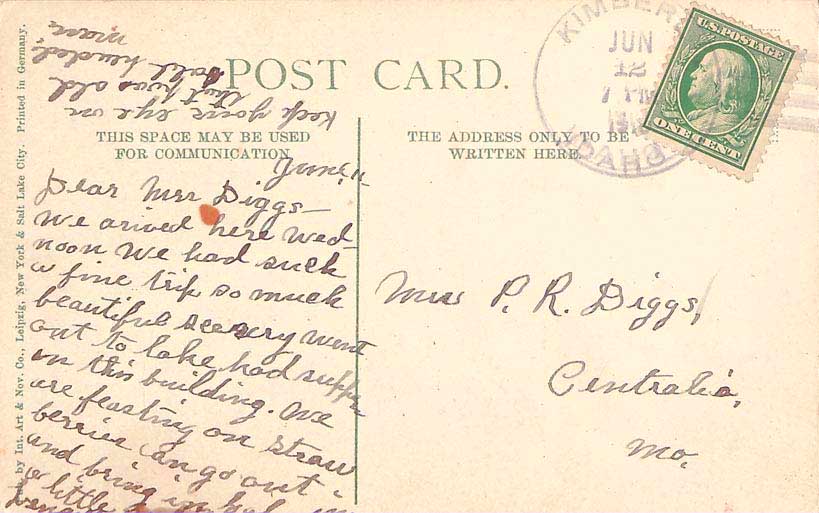 POST CARD.
THIS SPACE MAY BE USED
FOR COMMUNICATION.
THE ADDRESS ONLY TO BE
WRITTEN HERE.
KIMBER
JUN
12
7 PM
IDAHO
U.S. POSTAGE
ONE CENT
June 11
Dear Mrs Diggs
We arived here Wed
noon We had such
a fine trip so much
beautiful scenery went
out to lake had supper
in this building. We
are feasting on Straw
berries can go out
and bring in
a little
Keep your eye on
that old
bald headed
man
Mrs P. R. Diggs,
Centralia,
Mo.
by Int. Art & Nov. Co., Leipzig, New York & Salt Lake City. Printed in Germany.